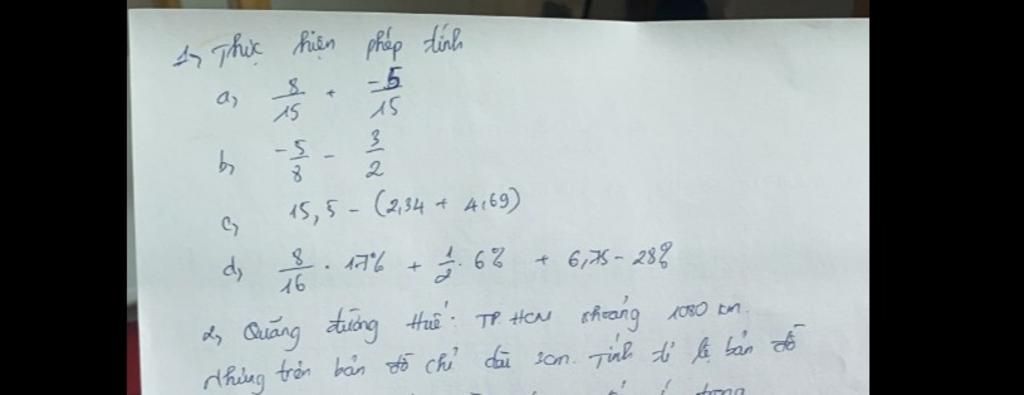 1, Thực hiện phép tính
a, 8/15 + -5/15
b, -5/8 - 3/2
c, 15,5 - (2,34 + 4,69)
d, 8/16 . 17% + 1/2 . 6% + 6,75 - 28%
2, Quãng đường Huế - TP. HCM khoảng 1080 km.
nhưng trên bản đồ chỉ dài 3cm. Tính tỉ lệ bản đồ
trong